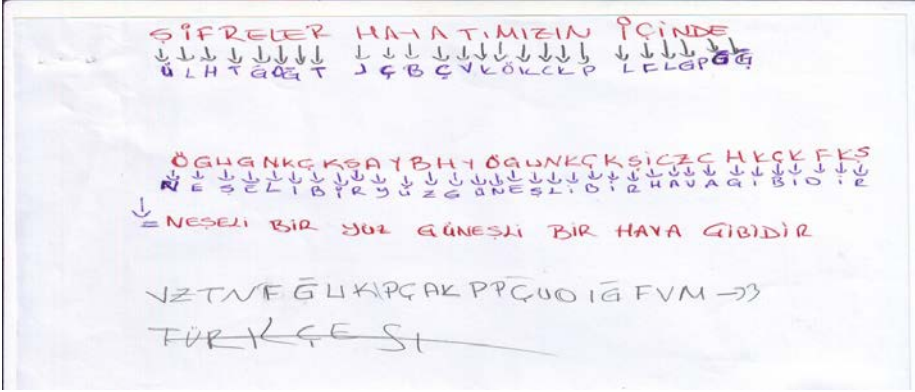 ŞİFRELER HAYATIMIZIN İÇİNDE
ÜLHTĞOĞT JÇBÇVKÖKCKP LFLGPGĞ
ÖGUGNKÇKSAYBHYÖGUNKÇKSİCZCHKÇKFKS
NEŞELİBİRYÜZGÜNEŞLİBİRHAVAGİBİDİR
= NEŞELİ BİR YÜZ GÜNEŞLİ BİR HAVA GİBİDİR
TÜRKÇESİ